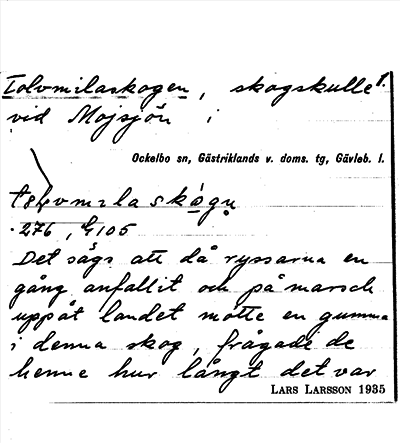 Tolvmilaskogen, skogskulle 1.
vid Mojsjön i
Ockelbo sn, Gästriklands v. doms. tg, Gävleb. l.
276, G105
Det sägs att då ryssarna en
gång anfallit och på marsch
uppåt landet mötte en gumma
i denna skog, frågade de
henne hur långt det var
LARS LARSSON 1935